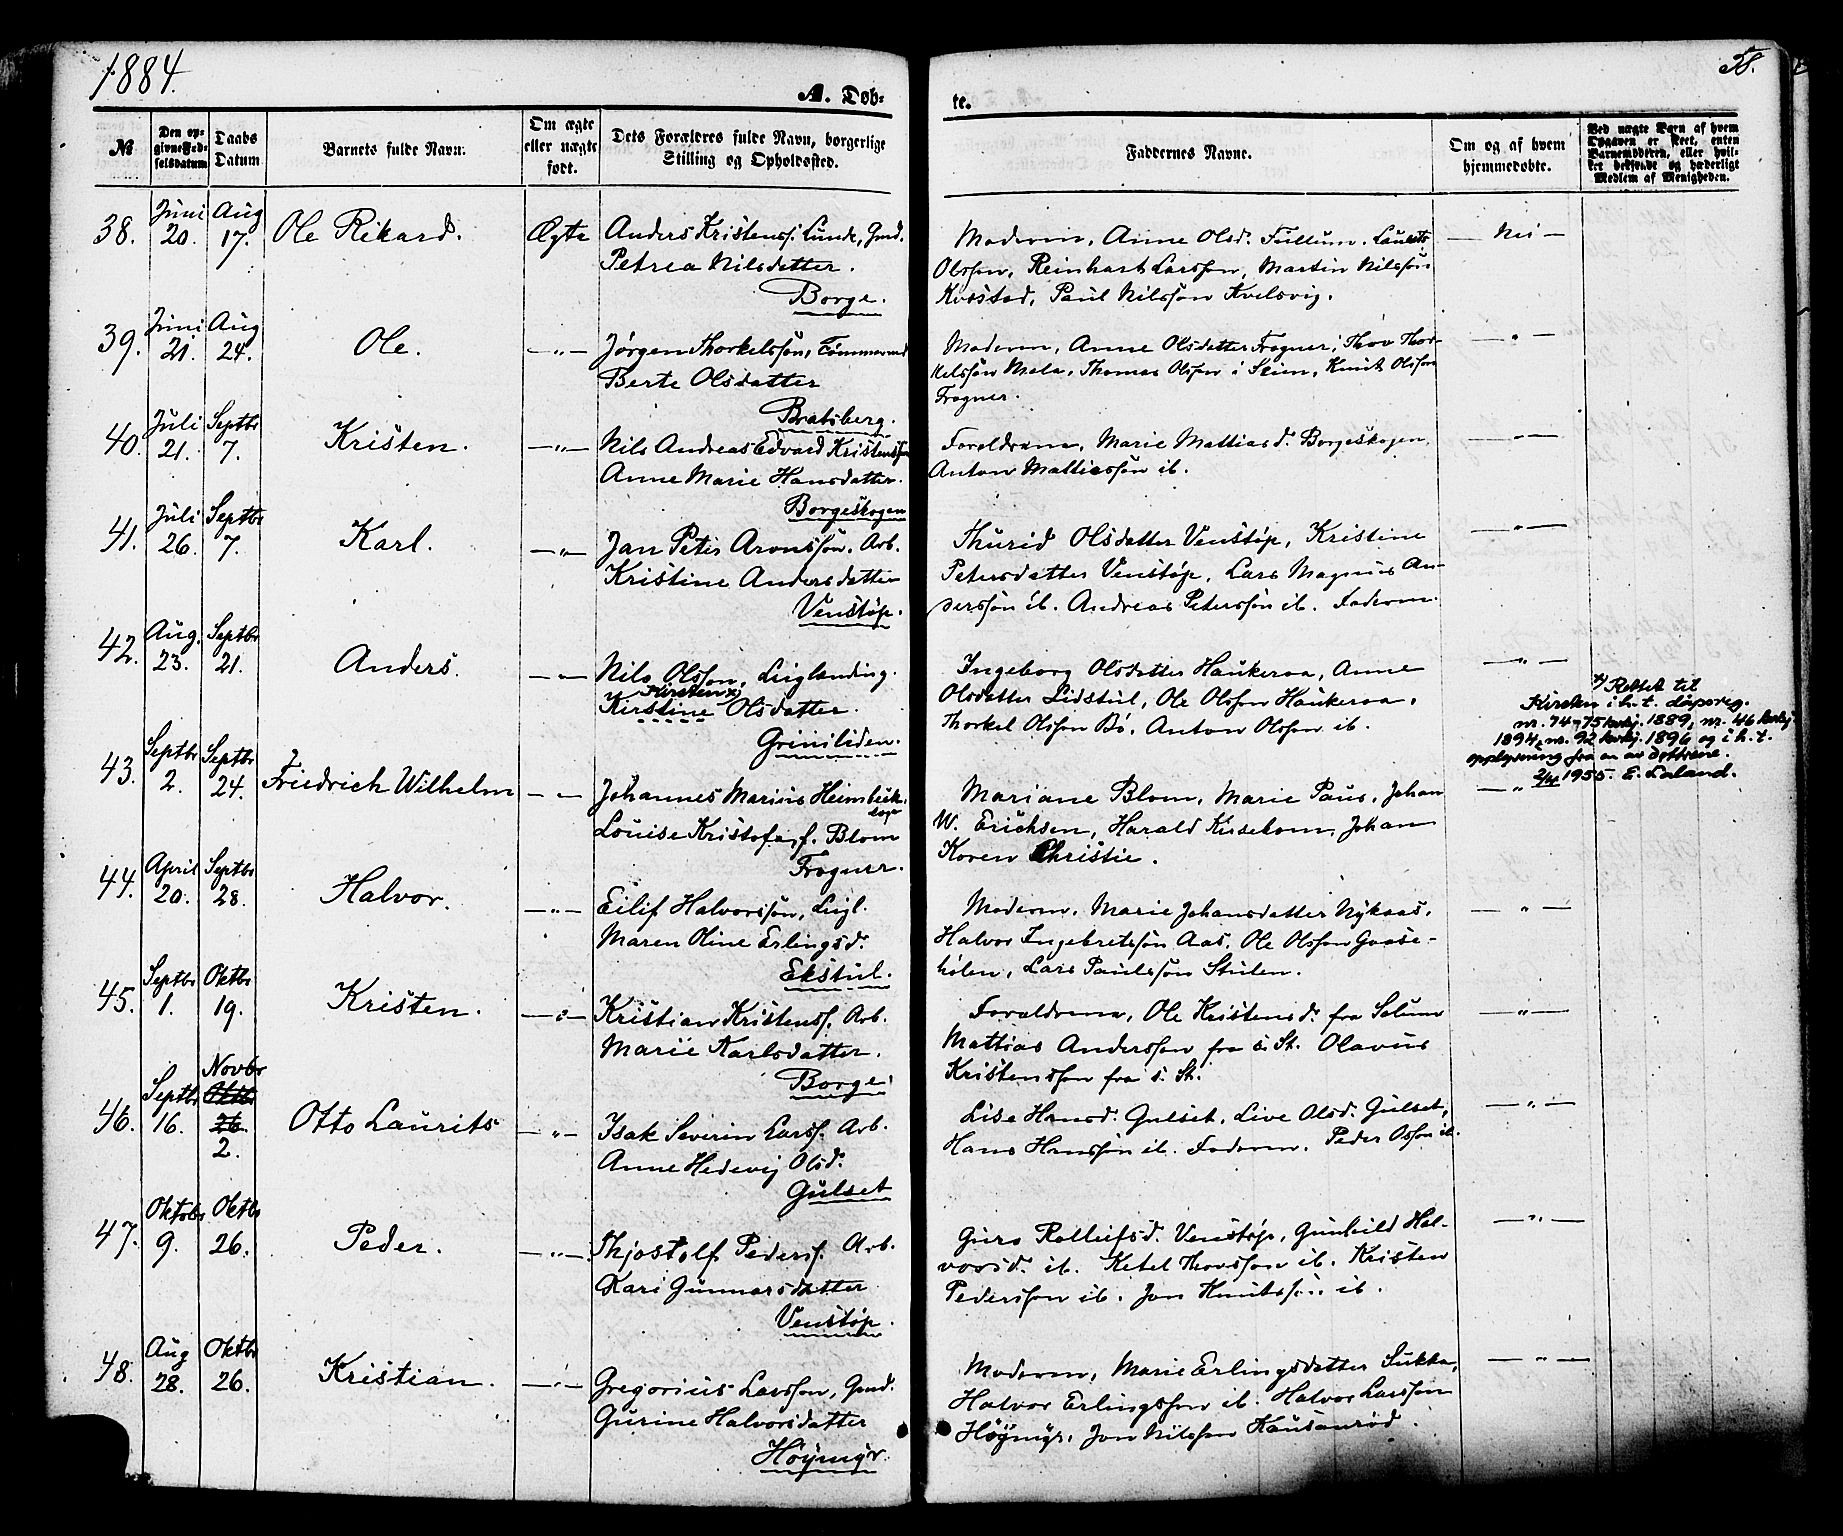 1884.
58.
A. Døb-
te.
№
Den op-
givne Fød-
selsdatum
Daabs
Datum.
Barnets fulde Navn.
Om ægte
eller uægte
født.
Dets Forældres fulde Navn, borgerlige
Stilling og Opholdssted.
Faddernes Navne.
Om og af hvem
hjemmedøbte.
Ved uægte Barn af hvem
Opgaven er skeet, enten
Barnemoderen, eller hvil-
ket bekjendt og hæderligt
Medlem af Menigheden.
38.
Juni
20.
Aug
17.
Ole Rikard.
Ægte
Anders Kristenss. Lunde, Gmd.
Petrea Nilsdatter.
Borge.
Moderen, Anne Olsd. Fullum. Laurits
Olsson, Reinhart Larsson, Martin Nilssøn
Paul Nilssøn Kvelsvig.
— Nei —
39.
Juni
21.
Aug
24.
Ole.
— " —
Jørgen Thorkelssøn, Tømmermd
Berte Olsdatter
Bratsberg.
Moderen, Anne Olsdatter Frogner, Thov Thor-
kelssøn Mæla, Thomas Olssen i Skien, Knut Olsson
Frogner.
— " —
40.
Juli
21.
Septbr
7.
Kristen.
— " —
Nils Andreas Edvard Kristenssøn
Anne Marie Hansdatter.
Borgeskogen
Foreldrene, Marie Mattiasd. Borgeskogen,
Anton Mattiassøn ib.
— " —
41.
Juli
26.
Septbr
7.
Karl.
— " —
Jan Peter Aronssøn. Arb.
Kristine Andersdatter
Venstøp.
Thurid Olsdatter Venstøp, Kristine
Petersdatter Venstøp, Lars Magnus An-
derssøn ib. Andreas Peterssøn ib. Faderen.
— " —
42.
Aug.
23.
Septbr
21.
Anders.
— " —
Nils Olsson, Leiglending.
Kirsten x)
Kirstine Olsdatter.
Griniliden.
Ingeborg Olsdatter Haukeraa, Anne
Olsdatter Lidstul, Ole Olsson Haukeraa,
Thorkel Olsson Bø, Anton Olsson ib.
— " —
x) Rettet til
Kirsten i h. t. dåpsreg.
nr. 74 - 75 kirkj. 1889, nr. 46 kirkj.
1894, nr. 92 kirkj. 1896 og i h. t.
opplysning fra en av døttrene.
2/4 1955. E. Laland.
43.
Septbr
2.
Septbr
24.
Friedrich Wilhelm
— " —
Johannes Marius Heimbeck,
Louise Kristofa, f. Blom
Frogner.
Mariane Blom, Marie Paus, Johan
W. Erichsen, Harald Kisekom, Johan
Koren Christie.
— " —
44.
April
20.
Septbr
28.
Halvor.
— " —
Eilif Halvorssøn, Leigl.
Maren Oline Erlingsd.
Ekstul.
Moderen, Marie Johansdatter Nykaas,
Halvor Ingebretssøn Aas, Ole Olsson Gaase-
hølen, Lars Paulssøn Stulen.
— " —
45.
Septbr
1.
Oktbr
19.
Kristen.
— " —
Kristian Kristenss. Arb.
Marie Karlsdatter.
Borge.
Foreldrene, Ole Kristensd. fra Solum
Mattias Andersson fra s. St. Olavus
Kristensson fra s. St.
— " —
46.
Septbr
16.
Novbr
Oktbr
26.
2.
Otto Laurits
— " —
Isak Severin Larss. Arb.
Anne Hedevig Olsd.
Gulset
Lise Hansd. Gulset, Live Olsd. Gulset,
Hans Hanssøn ib. Faderen. Peder Olsson ib.
— " —
47.
Oktobr
9.
Oktbr
26.
Peder.
— " —
Thjostolf Pederss. Arb.
Kari Gunnarsdatter
Venstøp.
Guro Rolleifsd. Venstøp, Gunhild Hal-
vorsd. ib. Ketel Thovsson ib. Kristen
Pedersson ib. Jon Knutssøn ib.
— " —
48.
Aug
28.
Oktbr
26.
Kristian.
— " —
Gregorius Larsson, Gmd.
Gurine Halvorsdatter
Høymyr.
Moderen, Marie Erlingsdatter Sukka,
Halvor Erlingsson ib. Halvor Larsson
Høymyr, Jon Nilsson Kausanrød.
— " —